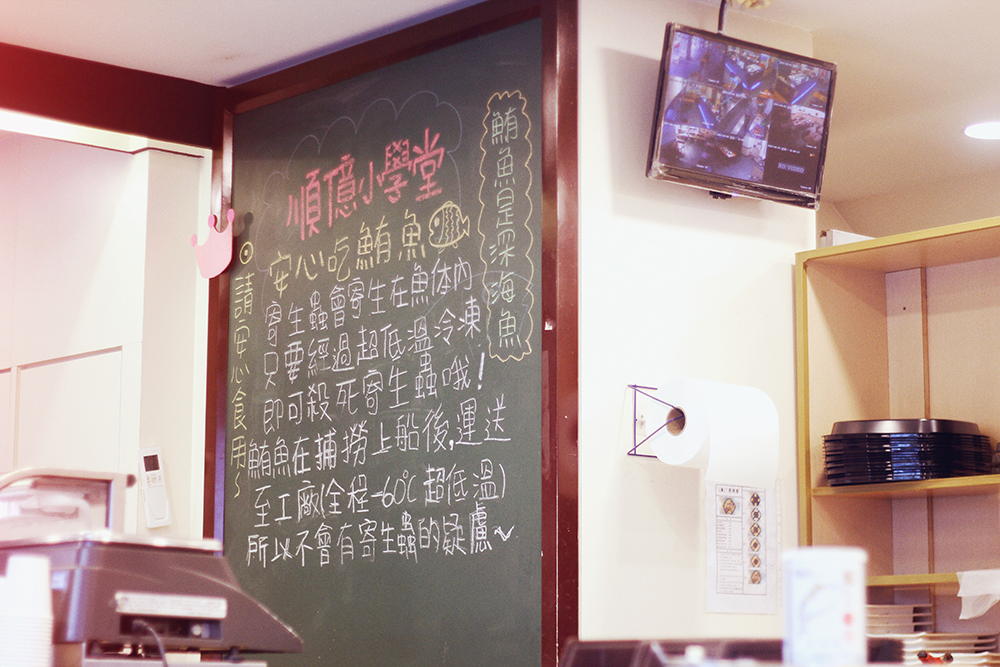 順億小學堂
安心吃鮪魚
寄生蟲會寄生在魚体內
只要經過超低溫冷凍
即可殺死寄生蟲哦!
鮪魚在捕撈上船後,運送
至工廠(全程-60℃超低溫)
所以不會有寄生蟲的疑慮
鮪魚是深海魚
請安心食用~